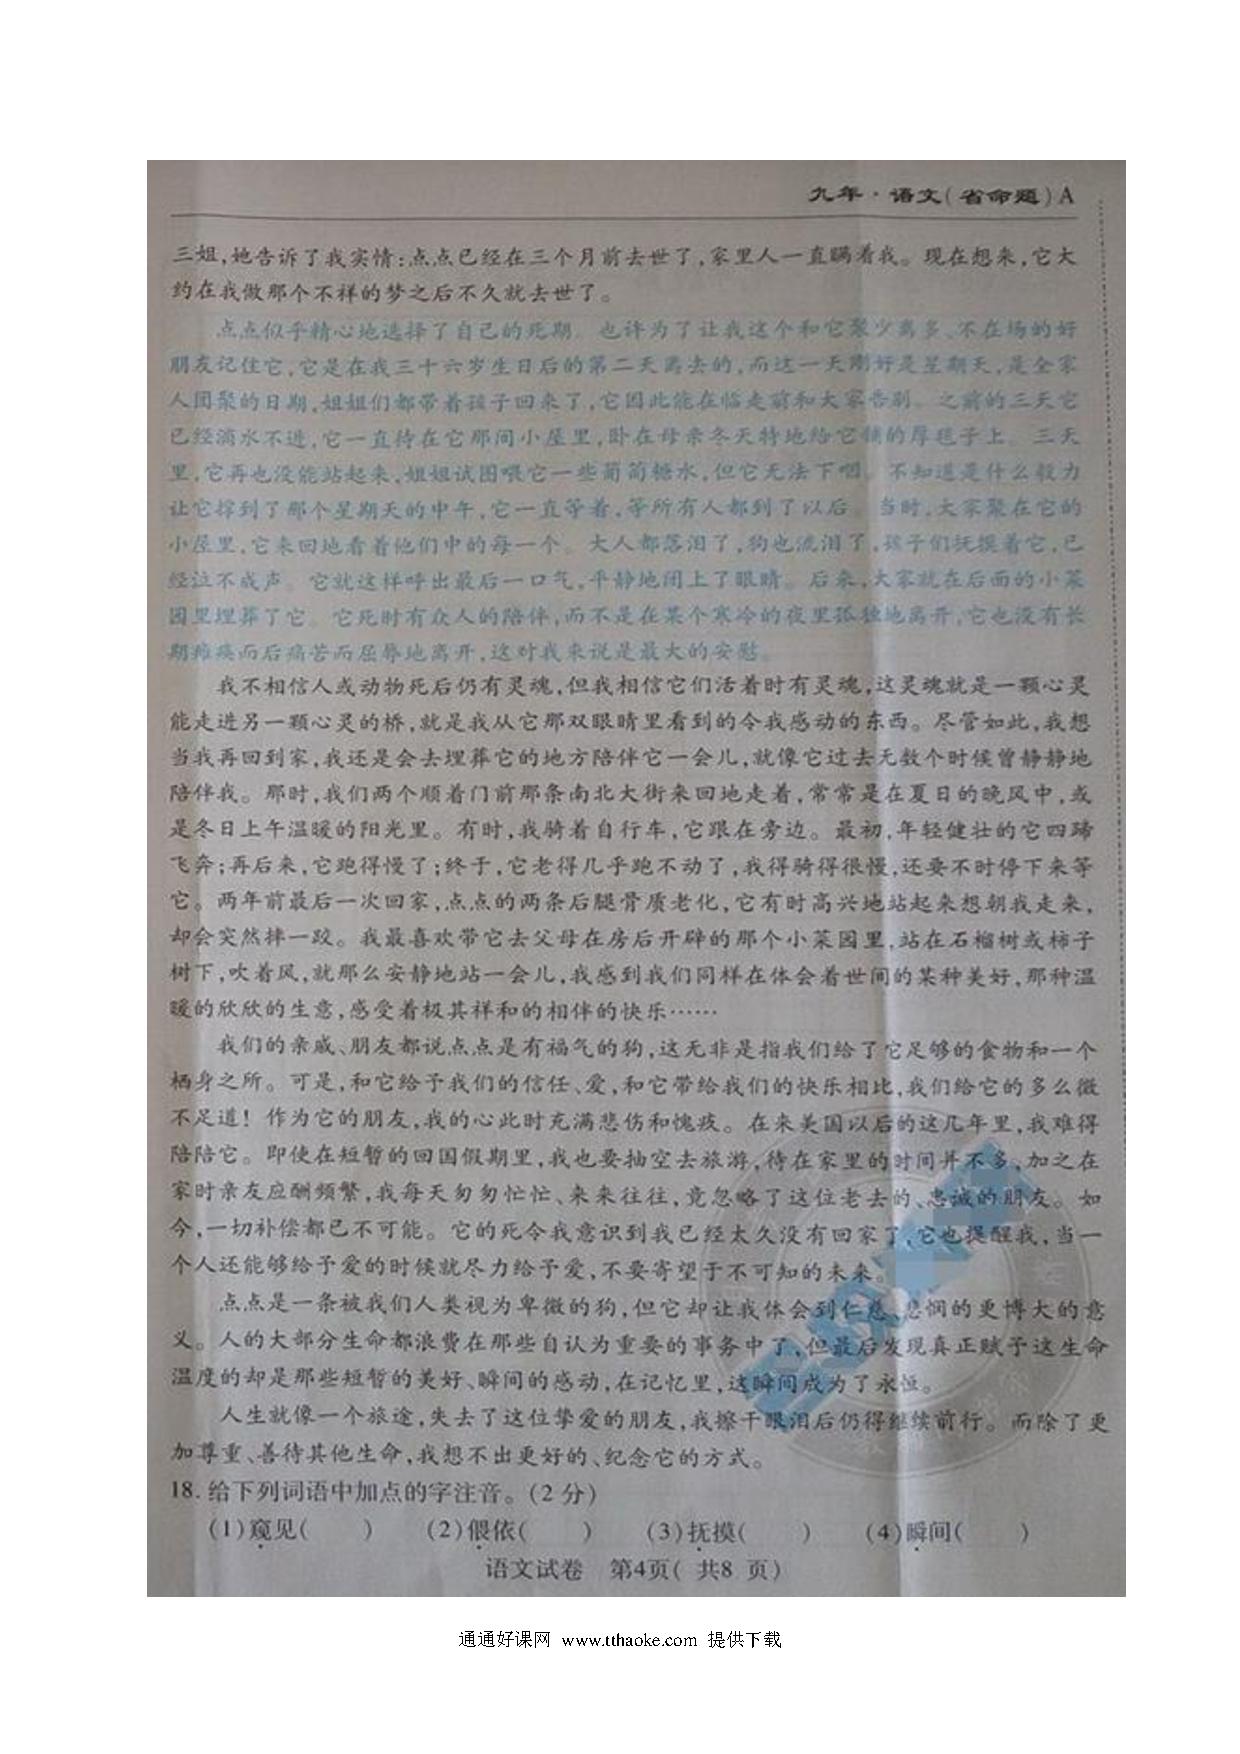 九年·语文(省命题)A
三姐,她告诉了我实情:点点已经在三个月前去世了,家里人一直瞒着我。现在想来,它大
约在我做那个不祥的梦之后不久就去世了。
点点似乎精心地选择了自己的死期。也许为了让我这个和它聚少离多、不在场的好
朋友记住它,它是在我三十六岁生日后的第二天离去的,而这一天刚好是星期天,是全家
人团聚的日期,姐姐们都带着孩子回来了,它因此能在临走前和大家告别。之前的三天它
已经滴水不进,它一直待在它那间小屋里,卧在母亲冬天特地给它铺的厚毯子上。三天
里,它再也没能站起来,姐姐试图喂它一些葡萄糖水,但它无法下咽。不知道是什么毅力
让它撑到了那个星期天的中午,它一直等着,等所有人都到了以后。当时,大家聚在它的
小屋里,它来回地看着他们中的每一个。大人都落泪了,狗也流泪了,孩子们抚摸着它,已
经泣不成声。它就这样呼出最后一口气,平静地闭上了眼睛。后来,大家就在后面的小菜
园里埋葬了它。它死时有众人的陪伴,而不是在某个寒冷的夜里孤独地离开,它也没有长
期瘫痪而后痛苦而屈辱地离开,这对我来说是最大的安慰。
我不相信人或动物死后仍有灵魂,但我相信它们活着时有灵魂,这灵魂就是一颗心灵
能走进另一颗心灵的桥,就是我从它那双眼睛里看到的令我感动的东西。尽管如此,我想
当我再回到家,我还是会去埋葬它的地方陪伴它一会儿,就像它过去无数个时候曾静静地
陪伴我。那时,我们两个顺着门前那条南北大街来回地走着,常常是在夏日的晚风中,或
是冬日上午温暖的阳光里。有时,我骑着自行车,它跟在旁边。最初,年轻健壮的它四蹄
飞奔;再后来,它跑得慢了;终于,它老得几乎跑不动了,我得骑得很慢,还要不时停下来等
它。两年前最后一次回家,点点的两条后腿骨质老化,它有时高兴地站起来想朝我走来,
却会突然摔一跤。我最喜欢带它去父母在房后开辟的那个小菜园里,站在石榴树或柿子
树下,吹着风,就那么安静地站一会儿,我感到我们同样在体会着世间的某种美好,那种温
暖的欣欣的生意,感受着极其祥和的相伴的快乐……
我们的亲戚、朋友都说点点是有福气的狗,这无非是指我们给了它足够的食物和一个
栖身之所。可是,和它给予我们的信任、爱,和它带给我们的快乐相比,我们给它的多么微
不足道!作为它的朋友,我的心此时充满悲伤和愧疚。在来美国以后的这几年里,我难得
陪陪它。即使在短暂的回国假期里,我也要抽空去旅游,待在家里的时间并不多,加之在
家时亲友应酬频繁,我每天匆匆忙忙、来来往往,竟忽略了这位老去的、忠诚的朋友。如
今,一切补偿都已不可能。它的死令我意识到我已经太久没有回家了,它也提醒我,当一
个人还能够给予爱的时候就尽力给予爱,不要寄望于不可知的未来。
点点是一条被我们人类视为卑微的狗,但它却让我体会到仁慈、悲悯的更博大的意
义。人的大部分生命都浪费在那些自认为重要的事务中了,但最后发现真正赋予这生命
温度的却是那些短暂的美好、瞬间的感动,在记忆里,这瞬间成为了永恒。
人生就像一个旅途,失去了这位挚爱的朋友,我擦干眼泪后仍得继续前行。而除了更
加尊重、善待其他生命,我想不出更好的、纪念它的方式。
18.给下列词语中加点的字注音。(2分)
(1)窥见(    )  (2)偎依(    )  (3)抚摸(    )  (4)瞬间(    )
语文试卷 第4页( 共8 页)
通通好课网 www.tthaoke.com 提供下载